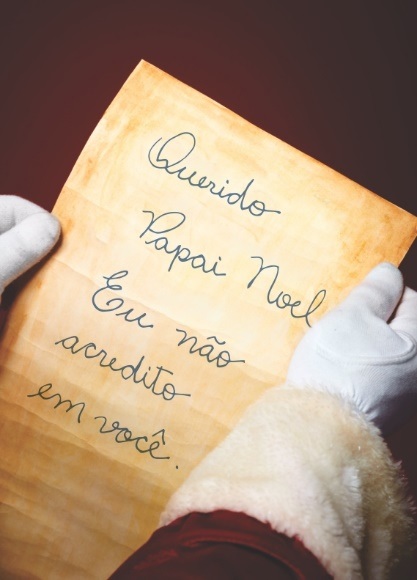 Querido
Papai Noel
Eu não
acredito
em você.